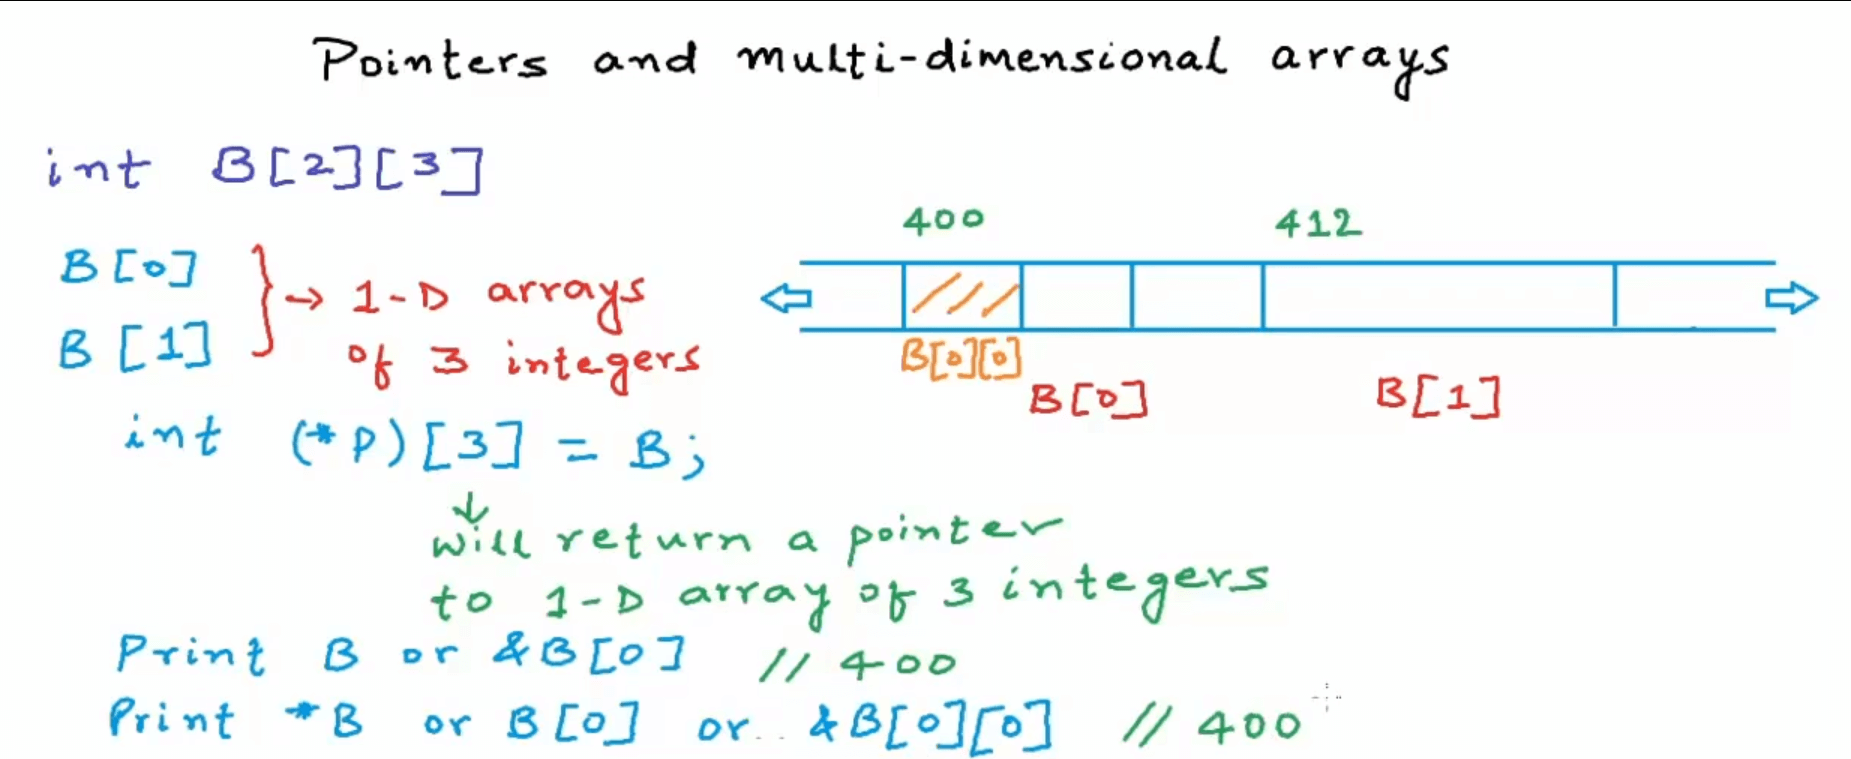 Pointers and multi-dimensional arrays
int B[2][3]
400 412
B[0]
B[1]
} → 1-D arrays
of 3 integers
B[0][0]
B[0] B[1]
int (*P)[3] = B;
↓
will return a pointer
to 1-D array of 3 integers
Print B or &B[0] // 400
Print *B or B[0] or &B[0][0] // 400